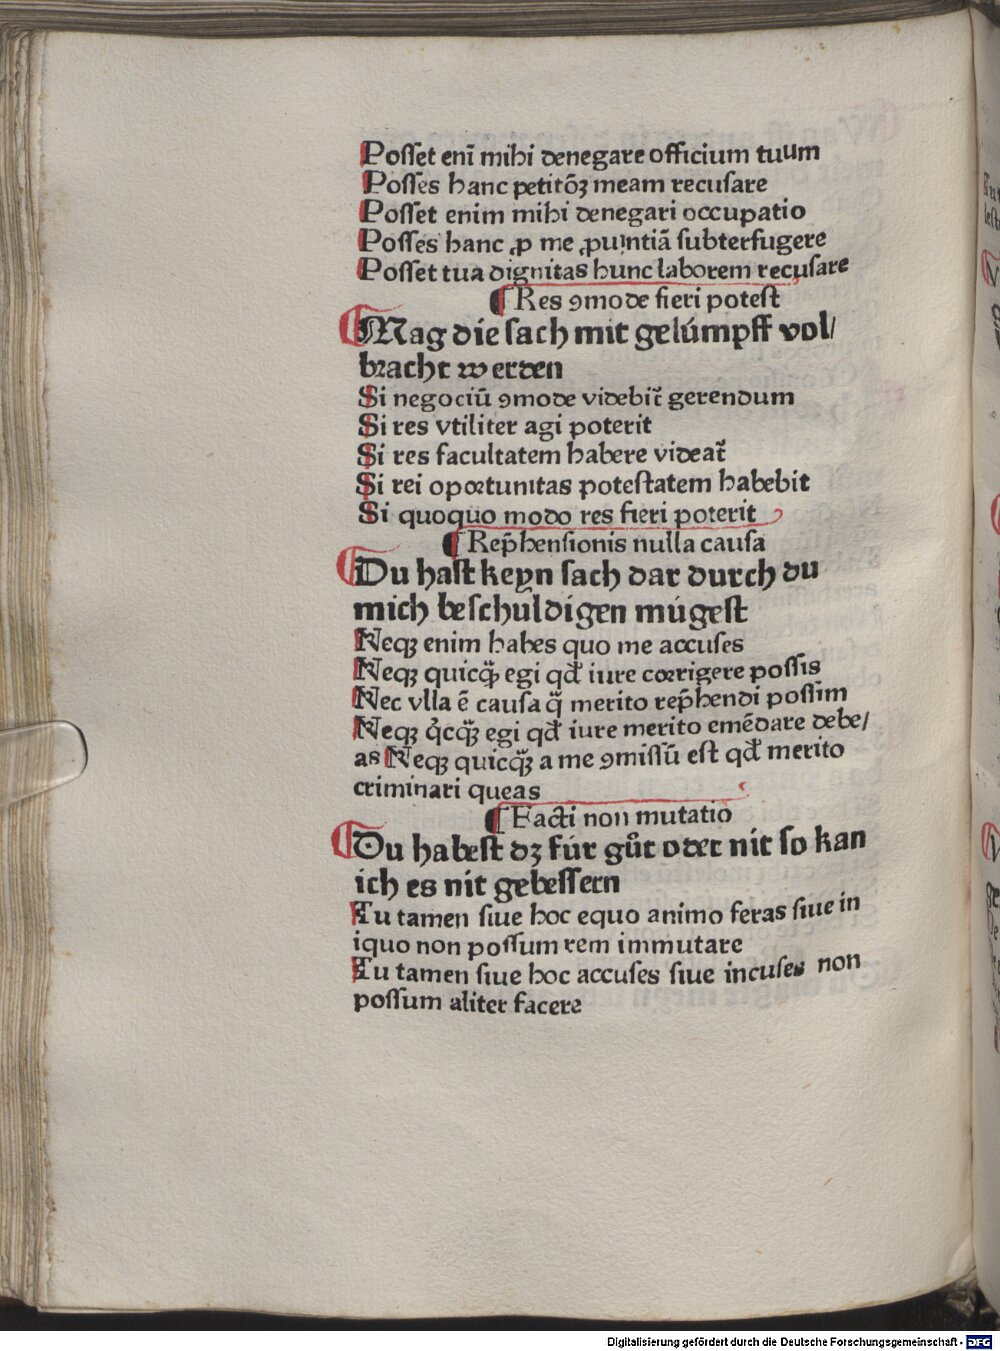 Posset enī mihi denegare officium tuum
Posses hanc petitōꝫ meam recusare
Posset enim mihi denegari occupatio
Posses hanc ꝓ me ꝓuintiā subterfugere
Posset tua dignitas hunc laborem recusare
¶ Res ꝯmode fieri potest
Mag die sach mit gelúmpff vol/
bracht werden
Si negociū ꝯmode videbit̃ gerendum
Si res vtiliter agi poterit
Si res facultatem habere videat̃
Si rei oportunitas potestatem habebit
Si quoquo modo res fieri poterit
¶ Rep̄hensionis nulla causa
Du hast keyn sach dar durch du
mich beschuldigen múgest
Neqꝫ enim habes quo me accuses
Neqꝫ quicq̄ꝫ egi qd̄ iure corrigere possis
Nec vlla ē causa q̄ merito rep̄hendi possim
Neqꝫ q̇cq̄ꝫ egi qd̄ iure merito emēdare debe/
as Neqꝫ quicq̄ꝫ a me ꝯmissū est qd̄ merito
criminari queas
¶ Facti non mutatio
Du habest dꝫ fúr gůt oder nit so kan
ich es nit gebessern
Tu tamen siue hoc equo animo feras siue in
iquo non possum rem immutare
Tu tamen siue hoc accuses siue incuses non
possum aliter facere
Digitalisierung gefördert durch die Deutsche Forschungsgemeinschaft - DFG